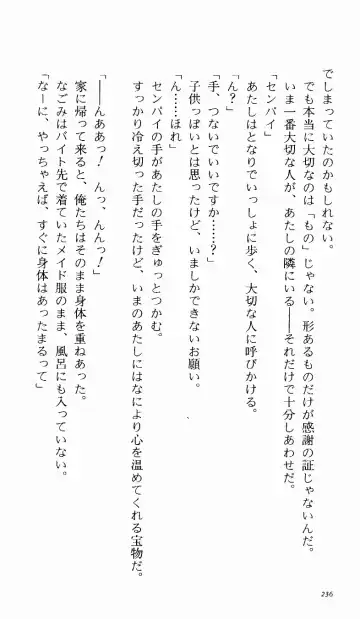 でしまっていたのかもしれない。
でも本当に大切なのは「もの」じゃない。形あるものだけが感謝の証じゃないんだ。
いま一番大切な人が、あたしの隣にいる――それだけで十分しあわせだ。
「センパイ」
あたしはとなりでいっしょに歩く、大切な人に呼びかける。
「ん?」
「手、つないでいいですか……?」
子供っぽいとは思ったけど、いましかできないお願い。
「ん……ほれ」
センパイの手があたしの手をぎゅっとつかむ。
すっかり冷え切った手だったけど、いまのあたしにはなにより心を温めてくれる宝物だ。
「――んああっ! んっ、んんっ!」
家に帰って来ると、俺たちはそのまま身体を重ねあった。
なごみはバイト先で着ていたメイド服のまま、風呂にも入っていない。
「なーに、やっちゃえば、すぐに身体はあったまるって」
236